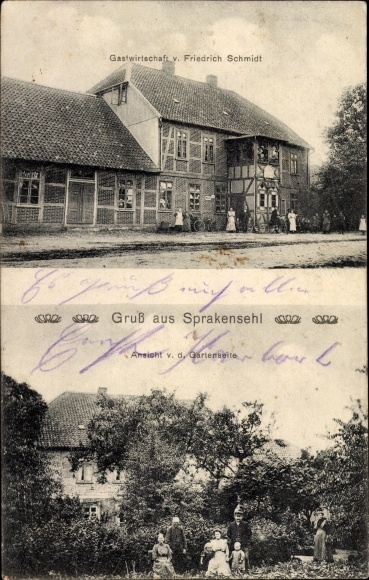 Gastwirtschaft v. Friedrich Schmidt
Es grüßt
Gruß aus Sprakensehl
Ansicht v. d. Gartenseite